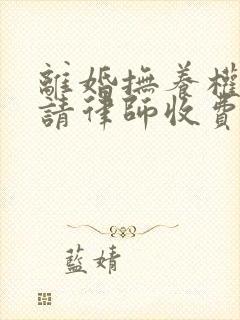 離婚撫養權
請律師收費
藍婧